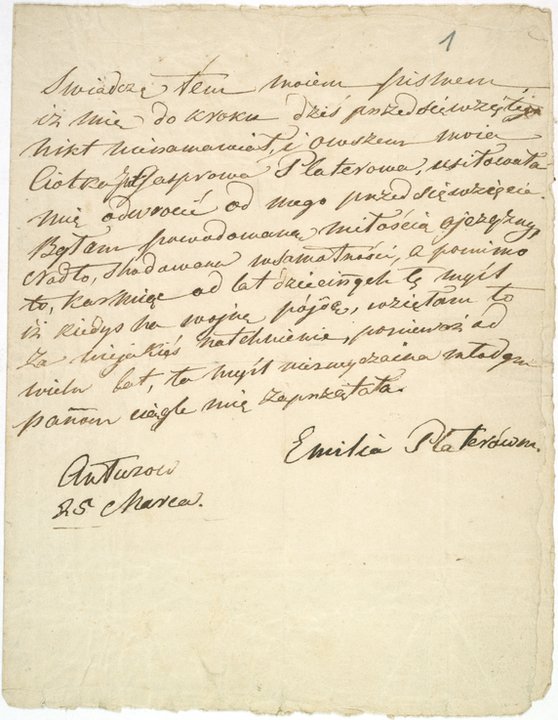 1
Swiadczę tem moiem pismem
iż mię do kroku dziś przedsięwziętego
nikt nienamawiał, i owszem moia
Ciotka Gasprowa Platerowa, usiłowała
mię odwrocić od mego przedsięwzięcia.
Byłam powodowaną miłością ojczyzny,
Nadto, shodowana wsamotności, a pomimo
to, karmiąc od lat dziecinnych tę myśl
iż kiedys na wojnę pójdę, wzięłam to
za niejakieś natchnienie, ponieważ od
wielu lat, ta myśl niezwyczaina młodym
pannom ciągle mię zaprzątała.
Emilia Platerówn.
Antuzow
25 Marca.